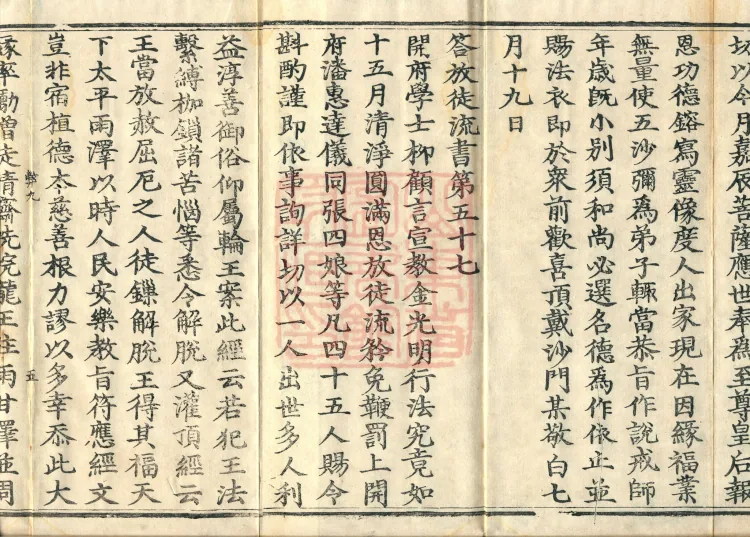 切以今月嘉辰菩薩應世奉爲至尊皇后報
恩功德鎔寫靈像度人出家現在因緣福業
無量使五沙彌爲弟子輙當恭旨作說戒師
年歲旣小別須和尚必選名德爲作依止並
賜法衣即於衆前歡喜頂戴沙門某敬白七
月十九日
答放徒流書第五十七
開府學士柳顧言宣教金光明行法究竟如
十五月清淨圓滿恩放徒流矜免鞭罰上開
府潘惠達儀同張四娘等凡四十五人賜令
斟酌謹即依事詢詳切以一人出世多人利
益淳善御俗仰屬輪王案此經云若犯王法
繫縛枷鎖諸苦惱等悉令解脫又灌頂經云
王當放赦屈厄之人徒鏁解脫王得其福天
下太平雨澤以時人民安樂教旨符應經文
豈非宿植德夲慈善根力謬以多幸忝此大
五
縁率勵僧徒清齋洗浣龍王注雨甘澤並周